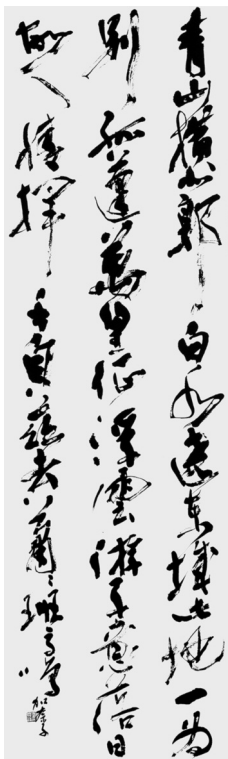 青山橫北郭白水遶東城此地一為
別孤蓬萬里征浮雲游子意落日
故人情揮手自茲去蕭〻班馬鳴